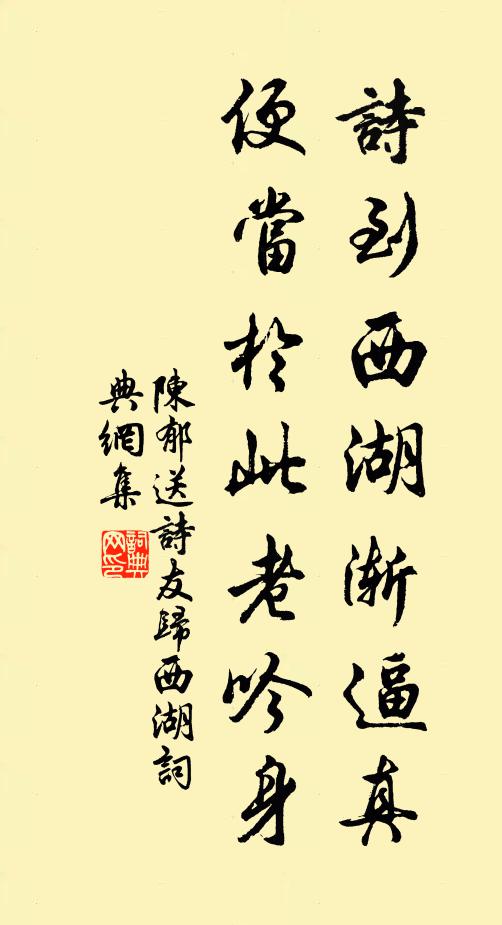 詩到西湖漸逼真
便當於此老吟身
陳郁送詩友歸西湖詞
典網集
詞典
网印